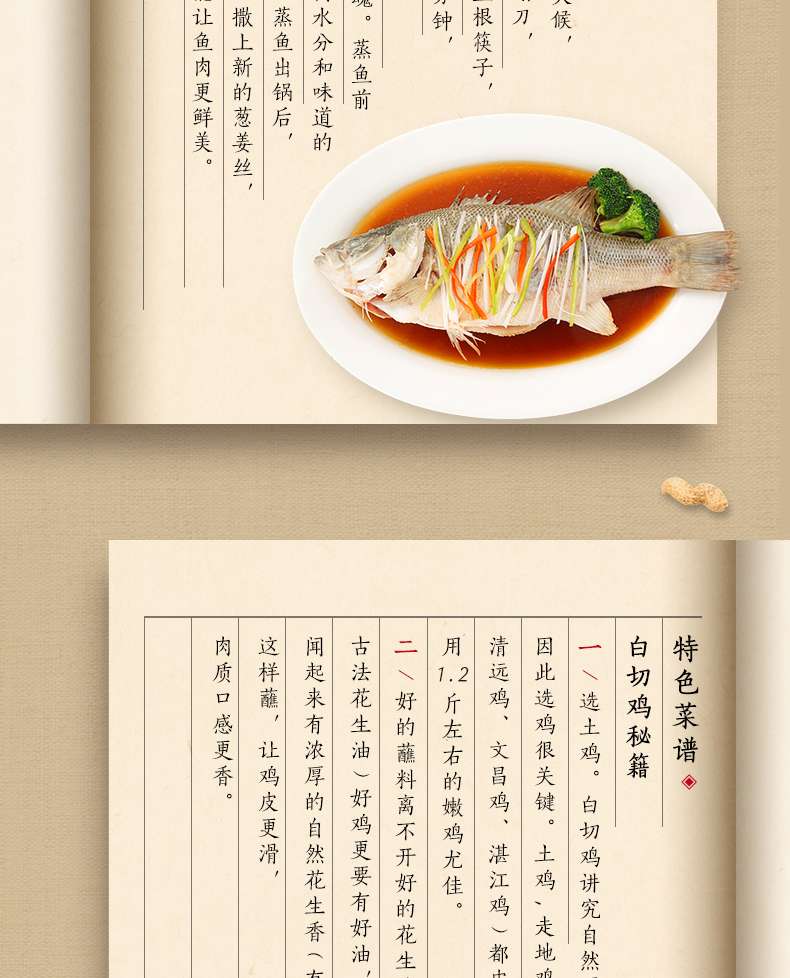 火候，
刀，
根筷子，
分钟，
魂。蒸鱼前
水分和味道的
蒸鱼出锅后，
撒上新的葱姜丝，
能让鱼肉更鲜美。
特色菜谱
白切鸡秘籍
一、选土鸡。白切鸡讲究自然
因此选鸡很关键。土鸡、走地鸡
清远鸡、文昌鸡、湛江鸡）都
用1.2斤左右的嫩鸡尤佳。
二、好的蘸料离不开好的花生
古法花生油）好鸡更要有好油，
闻起来有浓厚的自然花生香（
这样蘸，让鸡皮更滑，
肉质口感更香。